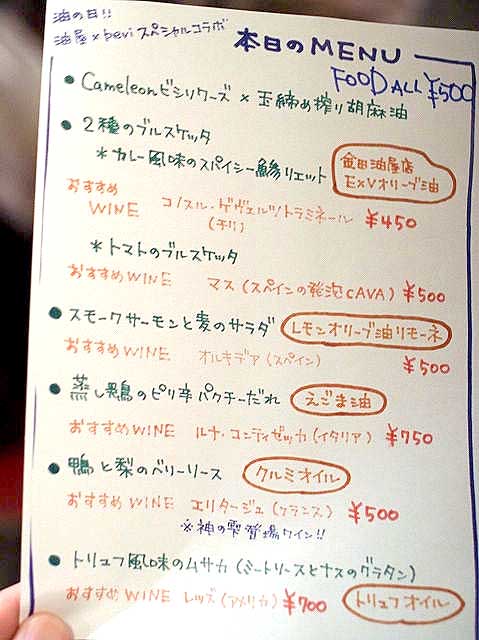 油の日!!
油屋×peviスペシャルコラボ
本日のMENU
FOOD ALL ¥500
● Cameleonビシソワーズ × 玉締め搾り胡麻油
● 2種のブルスケッタ
*カレー風味のスパイシー鯵リエット
金田油屋店
EXVオリーブ油
おすすめ
WINE コノスル・ゲヴェルツトラミネール ¥450
(チリ)
*トマトのブルスケッタ
おすすめWINE マス(スペインの発泡CAVA) ¥500
● スモークサーモンと麦のサラダ レモンオリーブ油リモーネ
おすすめWINE オルキデア(スペイン) ¥500
● 蒸し鶏のピリ辛パクチーだれ えごま油
おすすめWINE ルナ・コンティゼッカ(イタリア) ¥750
● 鴨と梨のベリーソース クルミオイル
おすすめWINE エリタージュ(フランス) ¥500
※神の雫登場ワイン!!
● トリュフ風味のムサカ(ミートソースとナスのグラタン)
おすすめWINE レッズ(アメリカ) ¥700 トリュフオイル